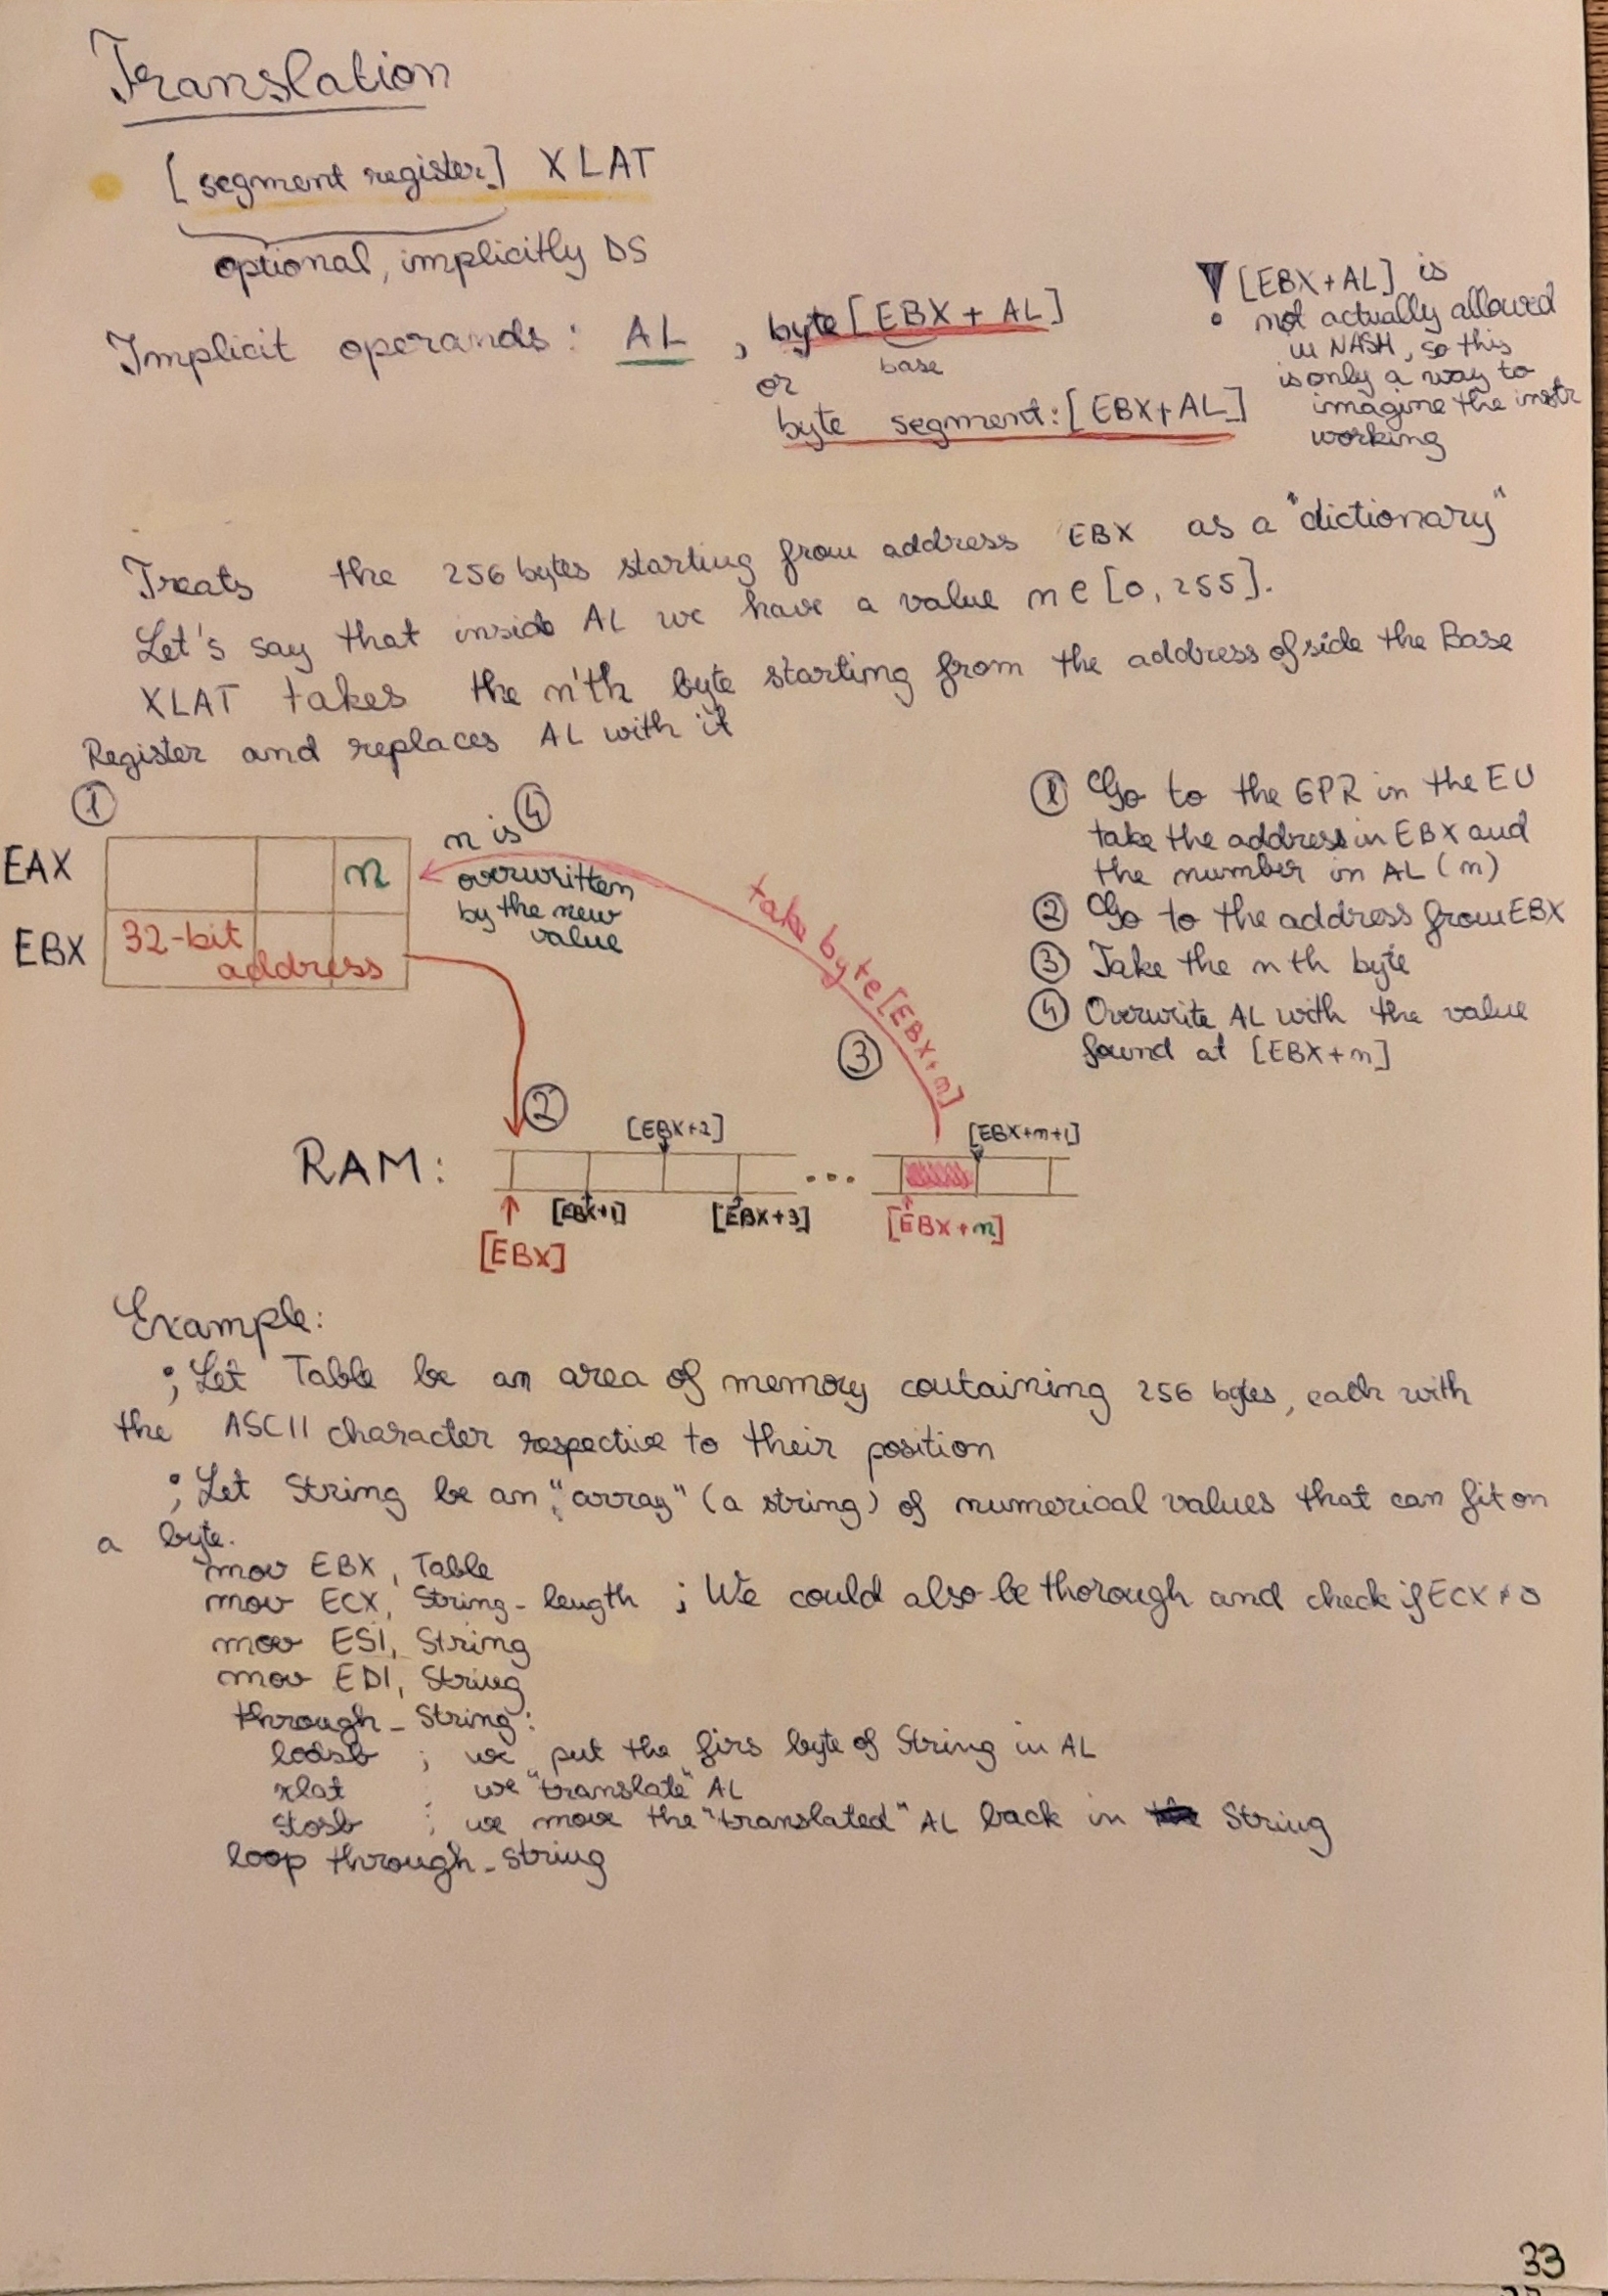 Translation
[segment register] XLAT
optional, implicitly DS
Implicit operands: AL , byte [EBX + AL]
base
or
byte segment:[EBX+AL]
! [EBX+AL] is
not actually allowed
in NASM, so this
is only a way to
imagine the instr
working
Treats the 256 bytes starting from address EBX as a "dictionary"
Let's say that inside AL we have a value n ∈ [0, 255].
XLAT takes the n'th byte starting from the address ofside the Base
Register and replaces AL with it
①
EAX n
EBX 32-bit
address
④
n is
overwritten
by the new
value
take byte [EBX+n]
③
① Go to the GPR in the EU
take the address in EBX and
the number in AL (n)
② Go to the address from EBX
③ Take the nth byte
④ Overwrite AL with the value
found at [EBX+n]
②
[EBX+2] [EBX+n+1]
RAM: ...
[EBX+1] [EBX+3] [EBX+n]
[EBX]
Example:
; Let Table be an area of memory containing 256 bytes, each with
the ASCII character respective to their position
; Let String be an "array" (a string) of numerical values that can fit on
a byte.
mov EBX, Table
mov ECX, String_length ; We could also be thorough and check if ECX ≠ 0
mov ESI, String
mov EDI, String
through_String:
lodsb ; we put the firs byte of String in AL
xlat ; we "translate" AL
stosb ; we move the "translated" AL back in String
loop through_string
33